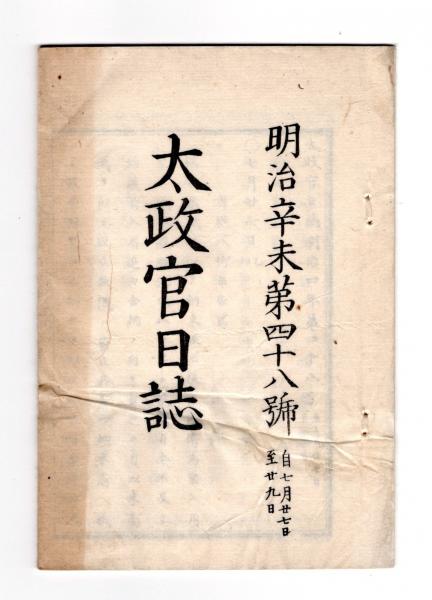 明治辛未第四十八號
自七月廿七日
至廿九日
太政官日誌